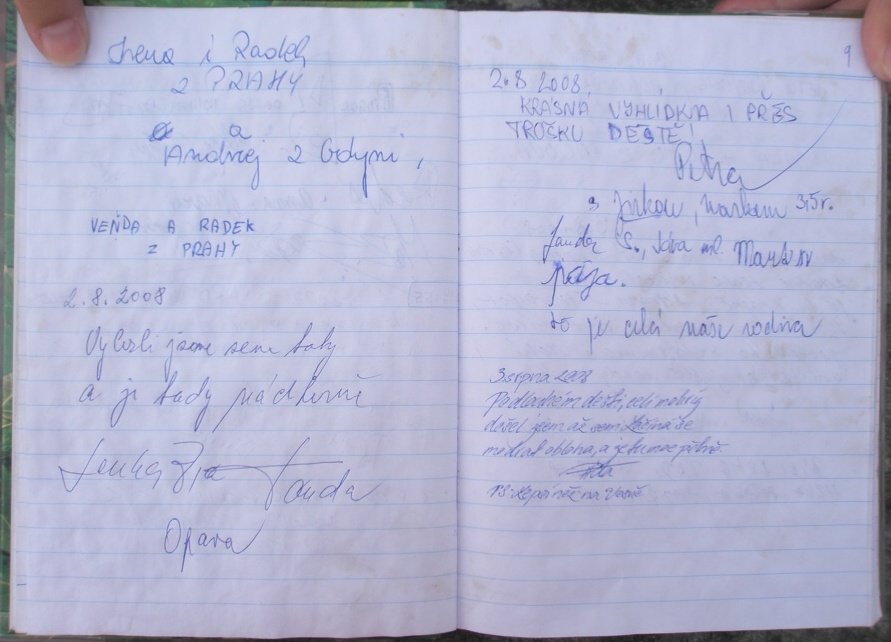 Irena i Radek
z PRAHY
a
Andrzej z Gdyni,
VENDA A RADEK
Z PRAHY
2.8.2008
Vylezli jsme sem taky
a je tady nádherně
Lenka Janda
Opava
9
2.8 2008,
KRÁSNÁ VYHLÍDKA I PŘES
TROŠKU DEŠTĚ!
Petra
s Jirkou, Markem 3,5r.
Jandа S., ml.
pája.
to je celá naše rodina
3 srpna 2008
Po dlouhém dešti, celí mokrý
došel jsem až sem Začíná se
modrat obloha, a je tu moc pěkně.
PS: